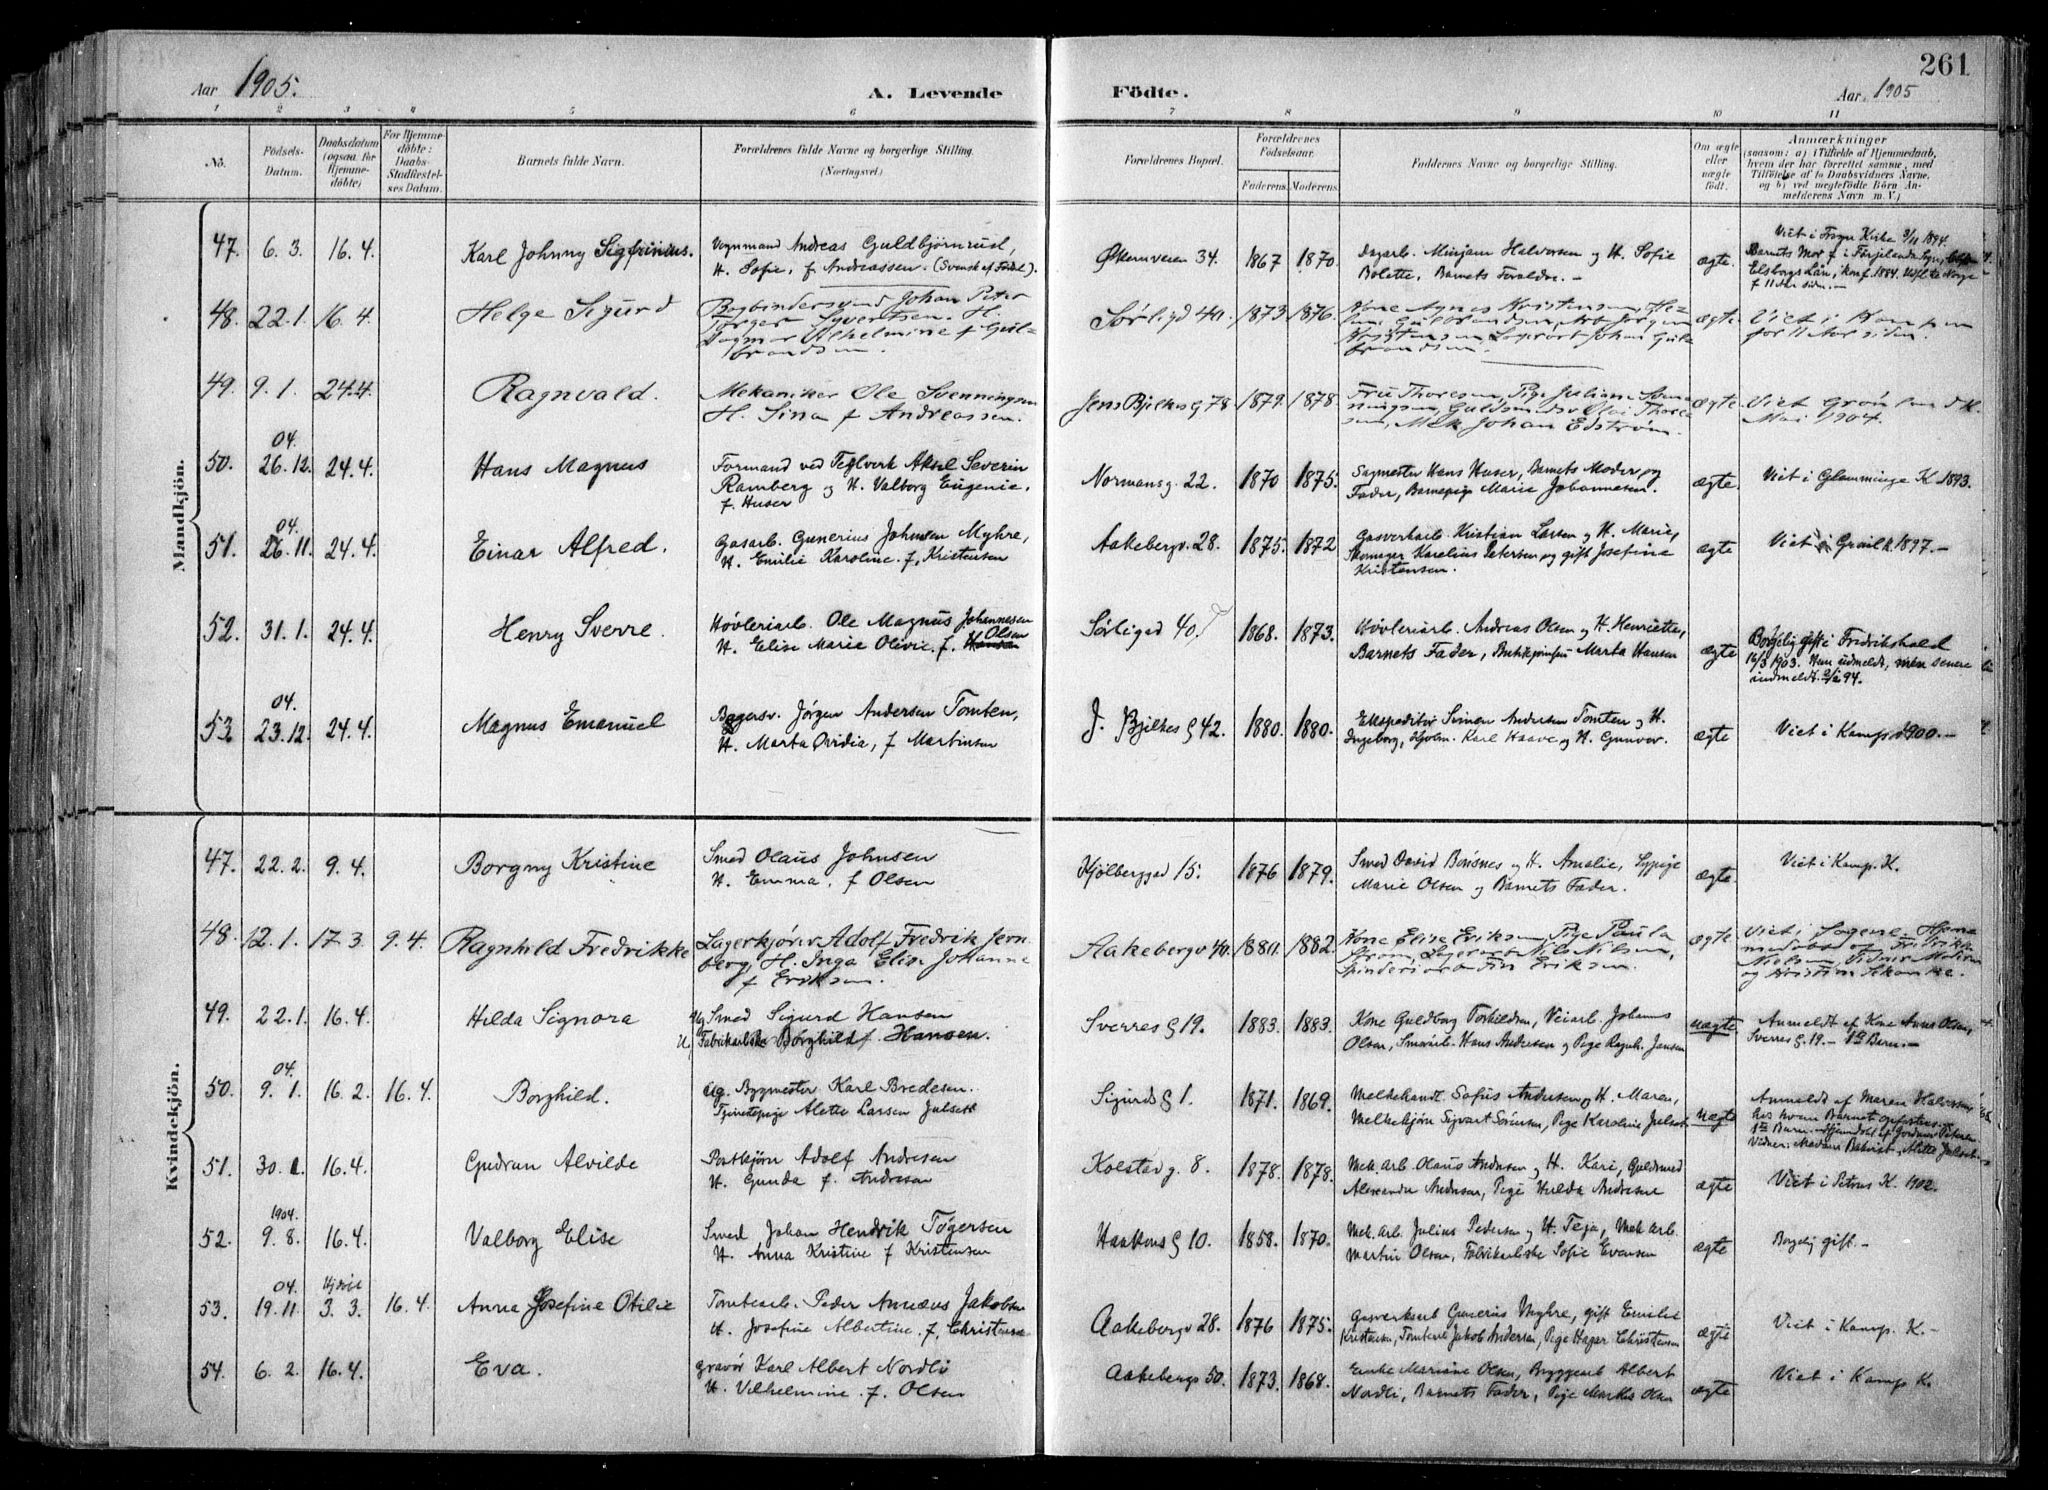 261
Aar 1905. A. Levende Födte. Aar 1905
1 2 3 4 5 6 7 8 9 10 11
No. Födsels-Datum. Daabsdatum (ogsaa for Hjemmedöbte) For Hjemmedöbte: Daabs-Stadfæstelses Datum. Barnets fulde Navn. Forældrenes fulde Navne og borgerlige Stilling. (Næringsvei) Forældrenes Bopæl. Forældrenes Födselsaar. Faderens. Moderens. Faddernes Navne og borgerlige Stilling. Om ægte eller uægte födt. Anmærkninger
(saasom: a) i Tilfælde af Hjemmedaab,
hvem der har forrettet samme, med
Tilföielse af to Daabsvidners Navne,
og b) ved uægtefödte Börn An-
melderens Navn m. V.)
Mandkjön.
47. 6. 3. 16. 4. Karl Johnny Sigfrinius. Vognmand Andreas Guldbjørnrud,
H. Sofie, f Andreassen. (Svensk af Fødsel).
Økernveien 34. 1867 1870. Dagarb. Mirjam Halvorsen og H. Sofie
Bolette, Barnets Forældre. — ægte.
Viet i Frogn Kirke 3/11 1894.
48. 22. 1. 16. 4. Helge Sigurd Bogbindersvend Johan Peter
Torger Syvertsen. H.
Dagmar Vilhelmine f Gulbrandsen.
Sørligd 40. 1873 1876. Kone Agnes Kristensen, ægte. Viet i Kampen
for 11 Aar siden.
49. 9. 1. 24.4. Ragnvald. Mekaniker Ole Svenningsen
H. Sina f Andreassen.
Jens Bjelkes g 78 1879. 1878 Fru Thoresen, Pige Juliane Svenningsen, Guldsmedsv Olai Thoresen, Mek Johan Edstrøm. ægte. Viet Grønland K.
Mai 1904.
50. 04. 26. 12. 24. 4. Hans Magnus Formand ved Teglverk Aksel Severin
Ramberg og H. Valborg Eugenie,
f. Huser
Normansg. 22. 1870 1875. Sagmester Hans Huser, Barnets Moder og
Fader, Barnepige Marie Johannesen. ægte. Viet i Glemminge K 1893.
51. 04. 26. 11. 24. 4. Einar Alfred. Gasarb. Gunerius Johnsen Myhre,
H. Emilie Karoline. f. Kristensen
Aakebergv. 28. 1875. 1872 Gasverkarb Kristian Larsen og H. Marie,
Skomager Karelius Petersen og gift Josefine
Kristensen. ægte Viet i 1897.—
52. 31. 1. 24. 4. Henry Sverre. Høvleriarb. Ole Magnus Johannessen
H. Elise Marie Olivie. f. Olsen
Sørligad 40. 1868. 1873. Høvleriarb. Andreas Olsen og H. Henriette,
Barnets Fader, Marta Hansen ægte Borgelig gift i Fredrikshald
16/3 1903. Hun udmeldt, men senere
indmeldt.
53 04. 23. 12. 24. 4. Magnus Emanuel Bagersv. Jørgen Andersen Tomten,
H. Marta Ovidia, f Martinsen
J. Bjelkes g 42. 1880. 1880. Ekspeditør Simen Andersen Tomten og H.
Ingeborg, Karl Haave og H. Gunvor. ægte Viet i Kamp. 1900.—
Kvindekjön.
47. 22. 2. 9. 4. Borgny Kristine Smed Olaus Johnsen
H. Emma. f Olsen
Hjølberggad 15. 1876 1879. Smed David Bonsnes og H. Amalie, Sypige
Marie Olsen og Barnets Fader. ægte. Viet i Kamp. K.
48. 12. 1. 17 3. 9. 4. Ragnhild Fredrikke Lagerkjører Adolf Fredrik Jernberg, H. Inga Elise Johanne
f Eriksen.
Aakebergv 40. 1880. 1882. Kone Elise Eriksen, Pige Paula
Strøm, Lagerarb Nils Nilsen,
Eriksen. ægte Viet i Sagene.
49. 22. 1. 16. 4. Hilda Signora Ug Smed Sigurd Hansen
U. Fabrikarbske Borghild f. Hansen.
Sverres g 19. 1883. 1883. Kone Guldborg Torkildsen, Veiarb. Johannes
Olsen, Smedarb. Hans Andresen og Pige Ragnh. Jansen uægte Anmeldt af Kone Anna Olsen,
Sverres g. 19. — 1ste Barn. —
50. 04. 9. 1. 16. 2. 16. 4. Borghild. Ug. Bygmester Karl Bredesen.
Tjenestepige Alette Larsen Julseth
Sigurds g 1. 1871. 1869. Melkehandl. Sofus Andersen og H. Maren,
Melkekjør. Sigvart Sørensen, Pige Karoline Julseth uægte Anmeldt af Maren Halvorsen,
hos hvem Barnet opfostres.
1ste Barn.
51. 30. 1. 16. 4. Gudrun Alvilde Postkjør Adolf Andresen
H. Gunda f. Andresen
Kolstad g. 8. 1878. 1878. Mek. Arb. Olaus Andresen og H. Kari, Guldsmed
Alexander Andresen, Pige Hulda Andresen ægte Viet i Petrus K. 1902.
52. 1904. 9. 8. 16. 4. Valborg Elise Smed Johan Hendrik Tøgersen
H. Anna Kristine f Kristensen
Haakons g 10. 1858. 1870. Mek. Arb. Julius Pedersen og H. Teja, Mek Arb.
Martin Olsen, Fabrikarbske Sofie Evensen ægte Borgelig gift. —
53. 04. 19. 11. Hjdøbt 3. 3. 16. 4. Anna Josefine Otilie Tomtearb. Peder Annæus Jakobsen
H. Josefine Albertine. f. Christensen
Aakebergv 28. 1876 1875. Gasverkarb Gunerius Myhre, gift Emilie
Kristensen, Tomtearb Jakob Andersen, Pige Hagar Christensen ægte Viet i Kamp. K. —
54. 6. 2. 16. 4. Eva. Gravør Karl Albert Nordli
H. Vilhelmine. f. Olsen
Aakebergv 50. 1873. 1868. Enke Mariane Olsen, Albert
Nordli, Barnets Fader, Pige Markus Olsen ægte Viet i Kamp K.